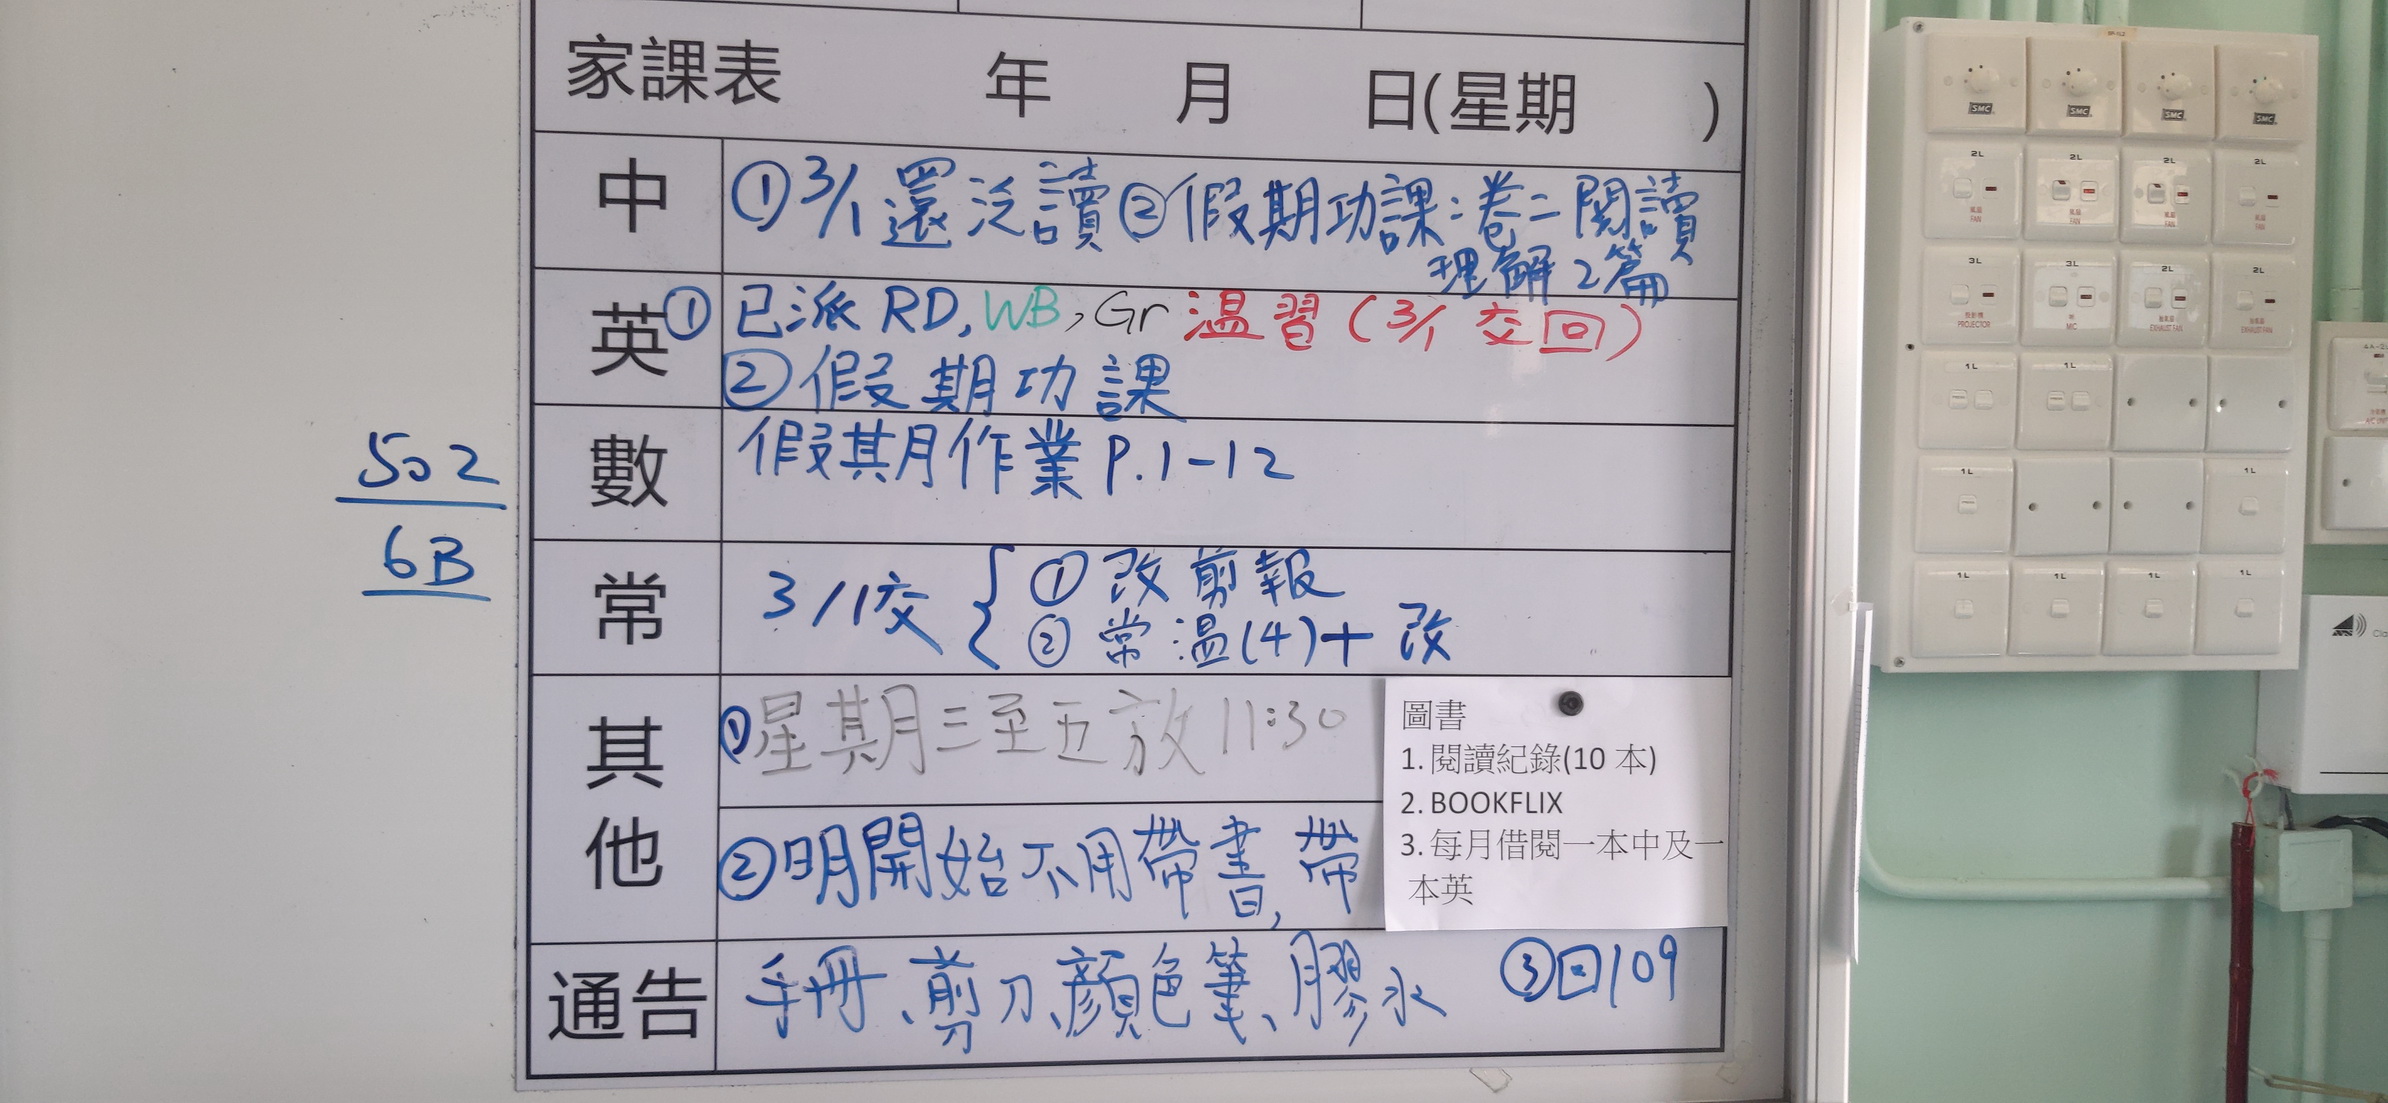 家課表 年 月 日(星期 )
中 ①3/1還泛讀②假期功課:卷二閱讀
理解2篇
英 ①已派RD,WB,Gr溫習(3/1交回)
②假期功課
數 假期作業P.1-12
502
6B
常 3/1交{①改剪報
②常溫(4)+改
其他 ①星期三至五放11:30
②明開始不用帶書,帶
圖書
1. 閱讀紀錄(10 本)
2. BOOKFLIX
3. 每月借閱一本中及一
本英
通告 手冊、剪刀、顏色筆、膠水 ③回109
SMC SMC SMC SMC
2L 2L 2L 2L
FAN FAN FAN FAN
3L 3L 2L 2L
PROJECTOR MIC EXHAUST FAN EXHAUST FAN
1L 1L
1L 1L
1L 1L 1L 1L